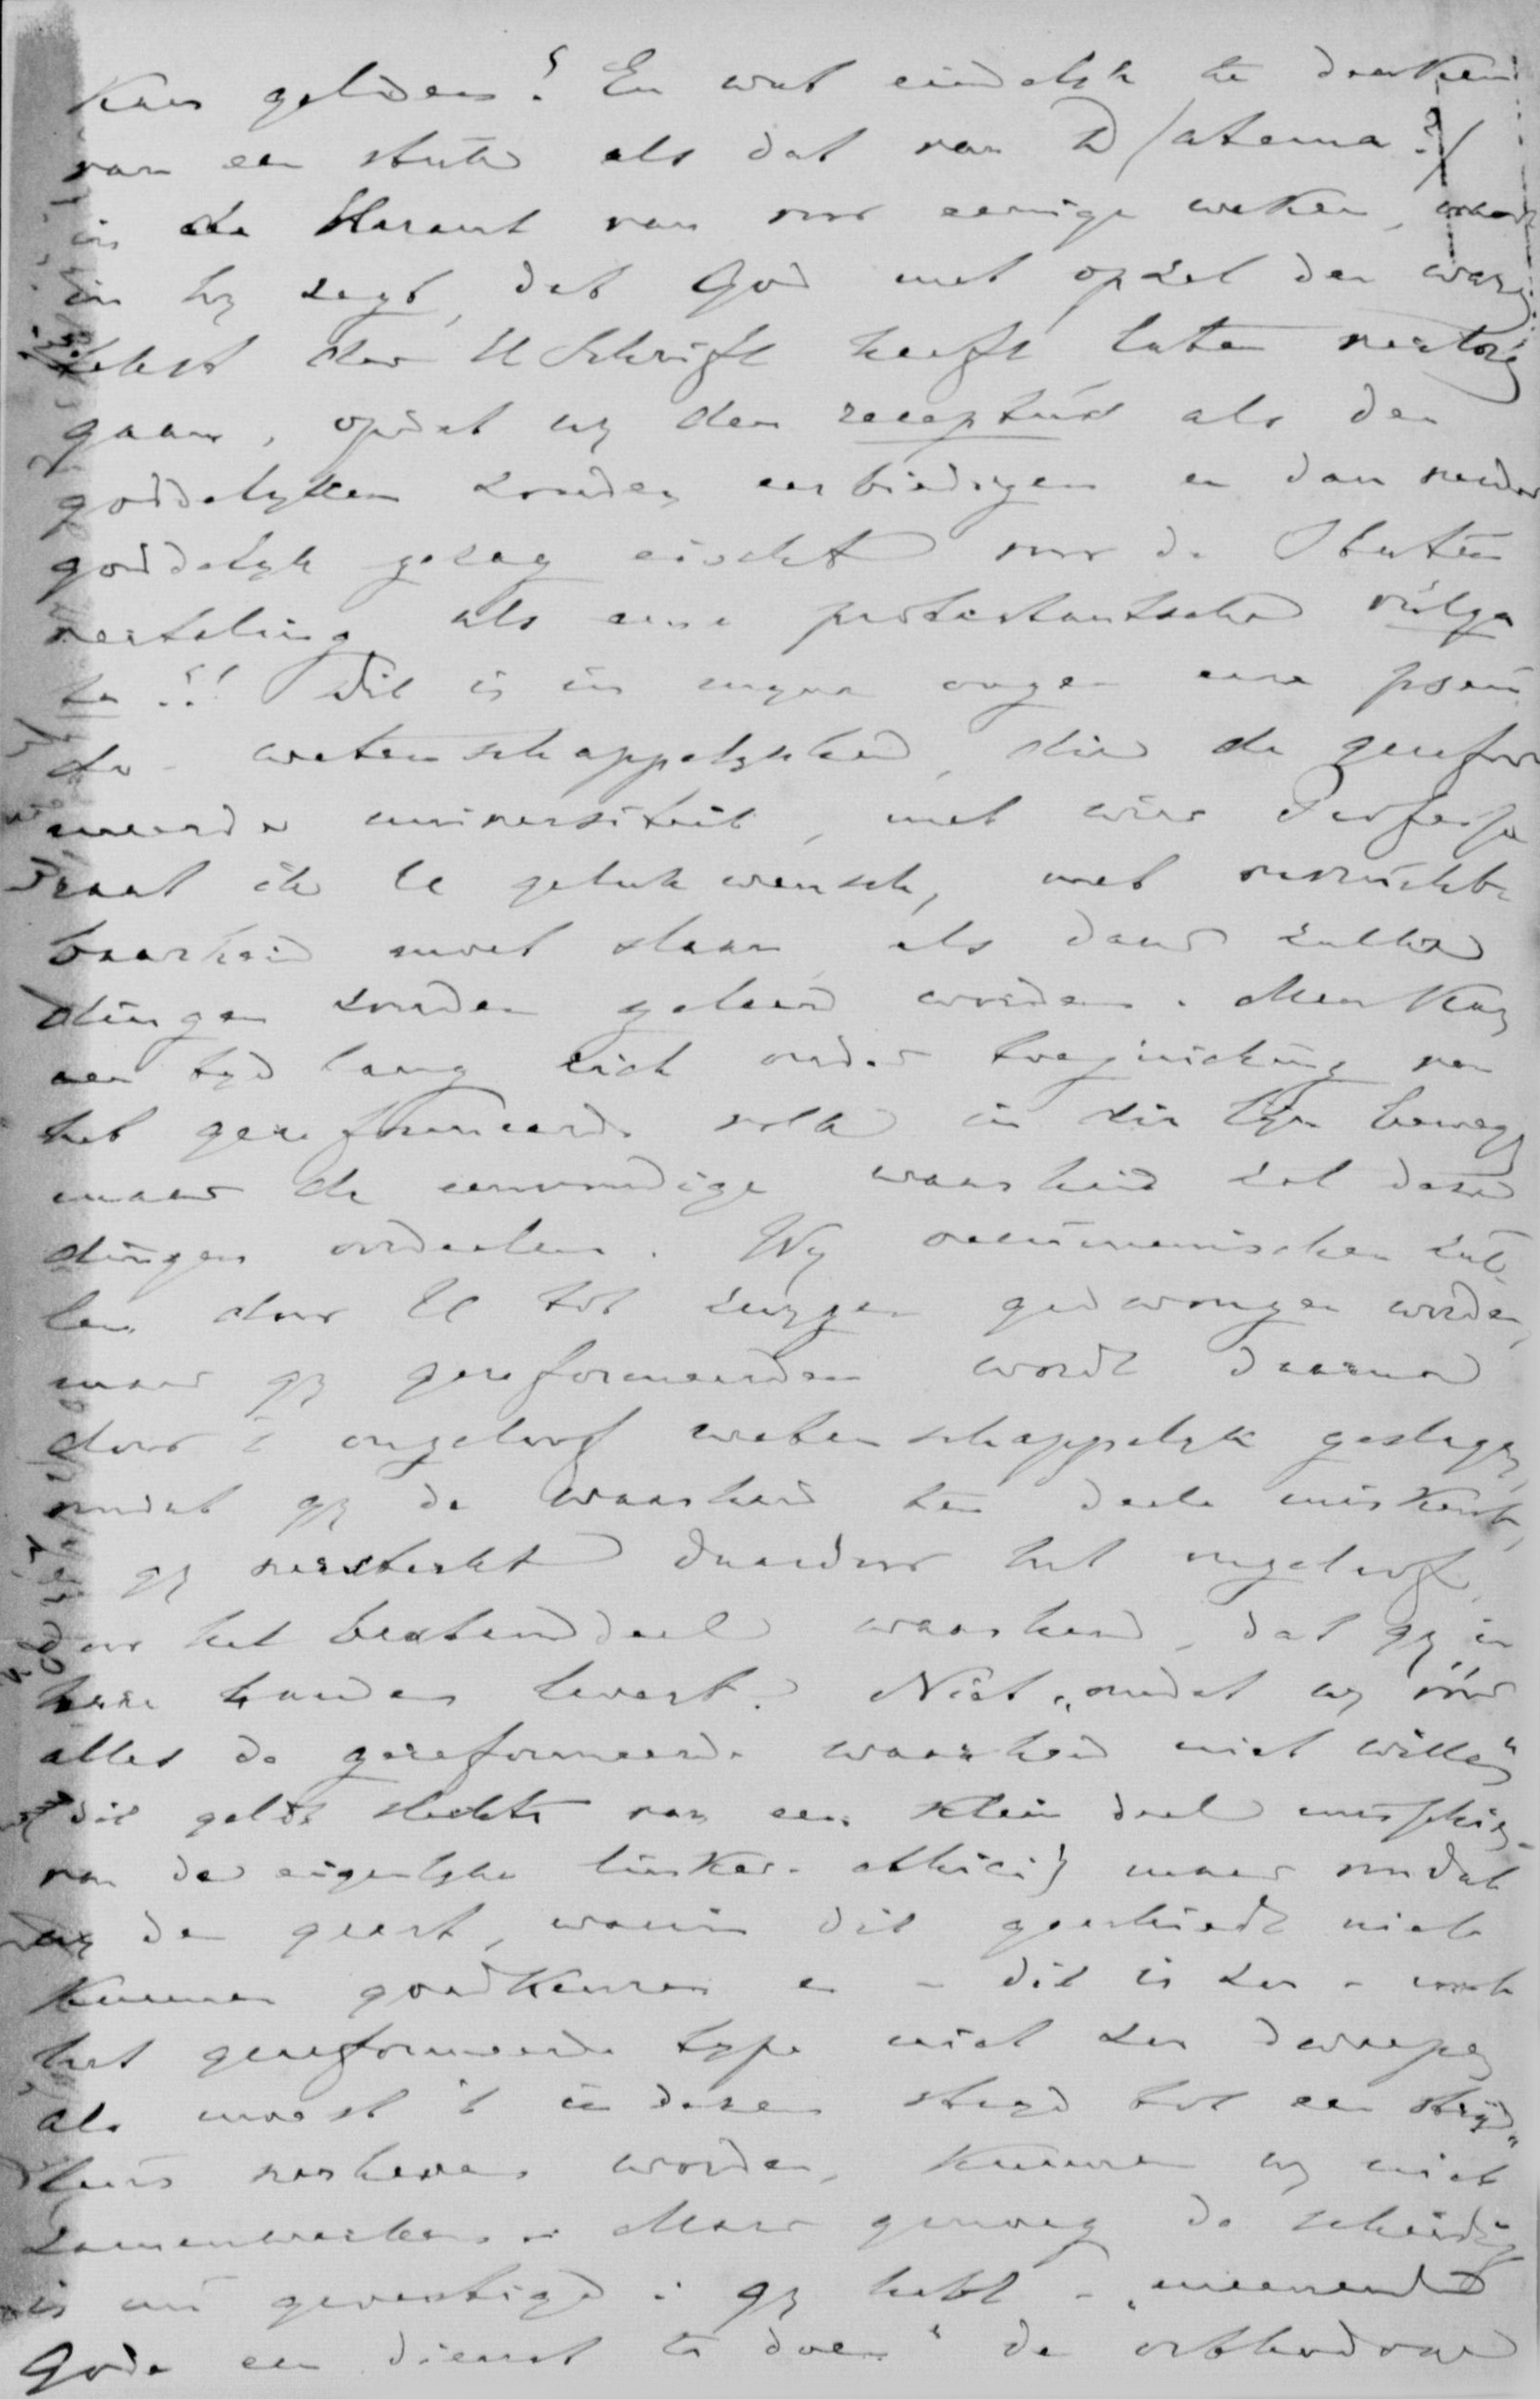 kan gelden? En wat eindelyk te denken
van een stuk als dat van D(atema?)
in de Heraut van voor eenige weken, waar
in hy zegt, dat God met opzet den waren
tekst der H Schrift heeft laten verlorg
gaan, opdat wy den receptus als den
goddelyken zouden eerbiedigen en dan verder
goddelyk gezag eischt voor de Staten
vertaling als eene protestantsche vulga
ta!! Dit is in myne oogen eene pseu
do-wetenschappelykheid, die de gerefor
meerde universiteit, met wier Professo
raat ik U geluk wensch, met onvruchtb
baarheid moet slaan, als daar zulke
dingen zouden geleerd worden. Men kan
een tyd lang zich onder toejuiching van
het gereformeerde volk in die lyn bewegen
maar de eenvoudige waarheid zal deze
dingen oordeelen. Wy oecumenischen zul-
len door U tot zwygen gedwongen worden,
maar gy gereformeerden wordt daarna
door 't ongeloof wetenschappelyk geslagen,
omdat gy de waarheid ten deele miskent,
gy versterkt daardoor het ongeloof,
door het bestanddeel waarheid, dat gy in
hare handen levert. Niet „omdat wy vóór
alles de gereformeerde waarheid niet willen"
(dit geldt slechts van een klein deel misschien
van de eigenlyke linker-ethici) maar omdat
wy den geest, waarin dit geschiedt niet
kunnen goedkeuren en - dit is zoo - ook
het gereformeerde type niet zoo dweepen
als moest 't in dezen stryd tot een stryd"
leus verheven worden, kunnen wy niet
samenwerken. Maar genoeg de scheiding
is nu gevestigd: gy hebt - „meenende
Gode een dienst te doen" de orthodoxe